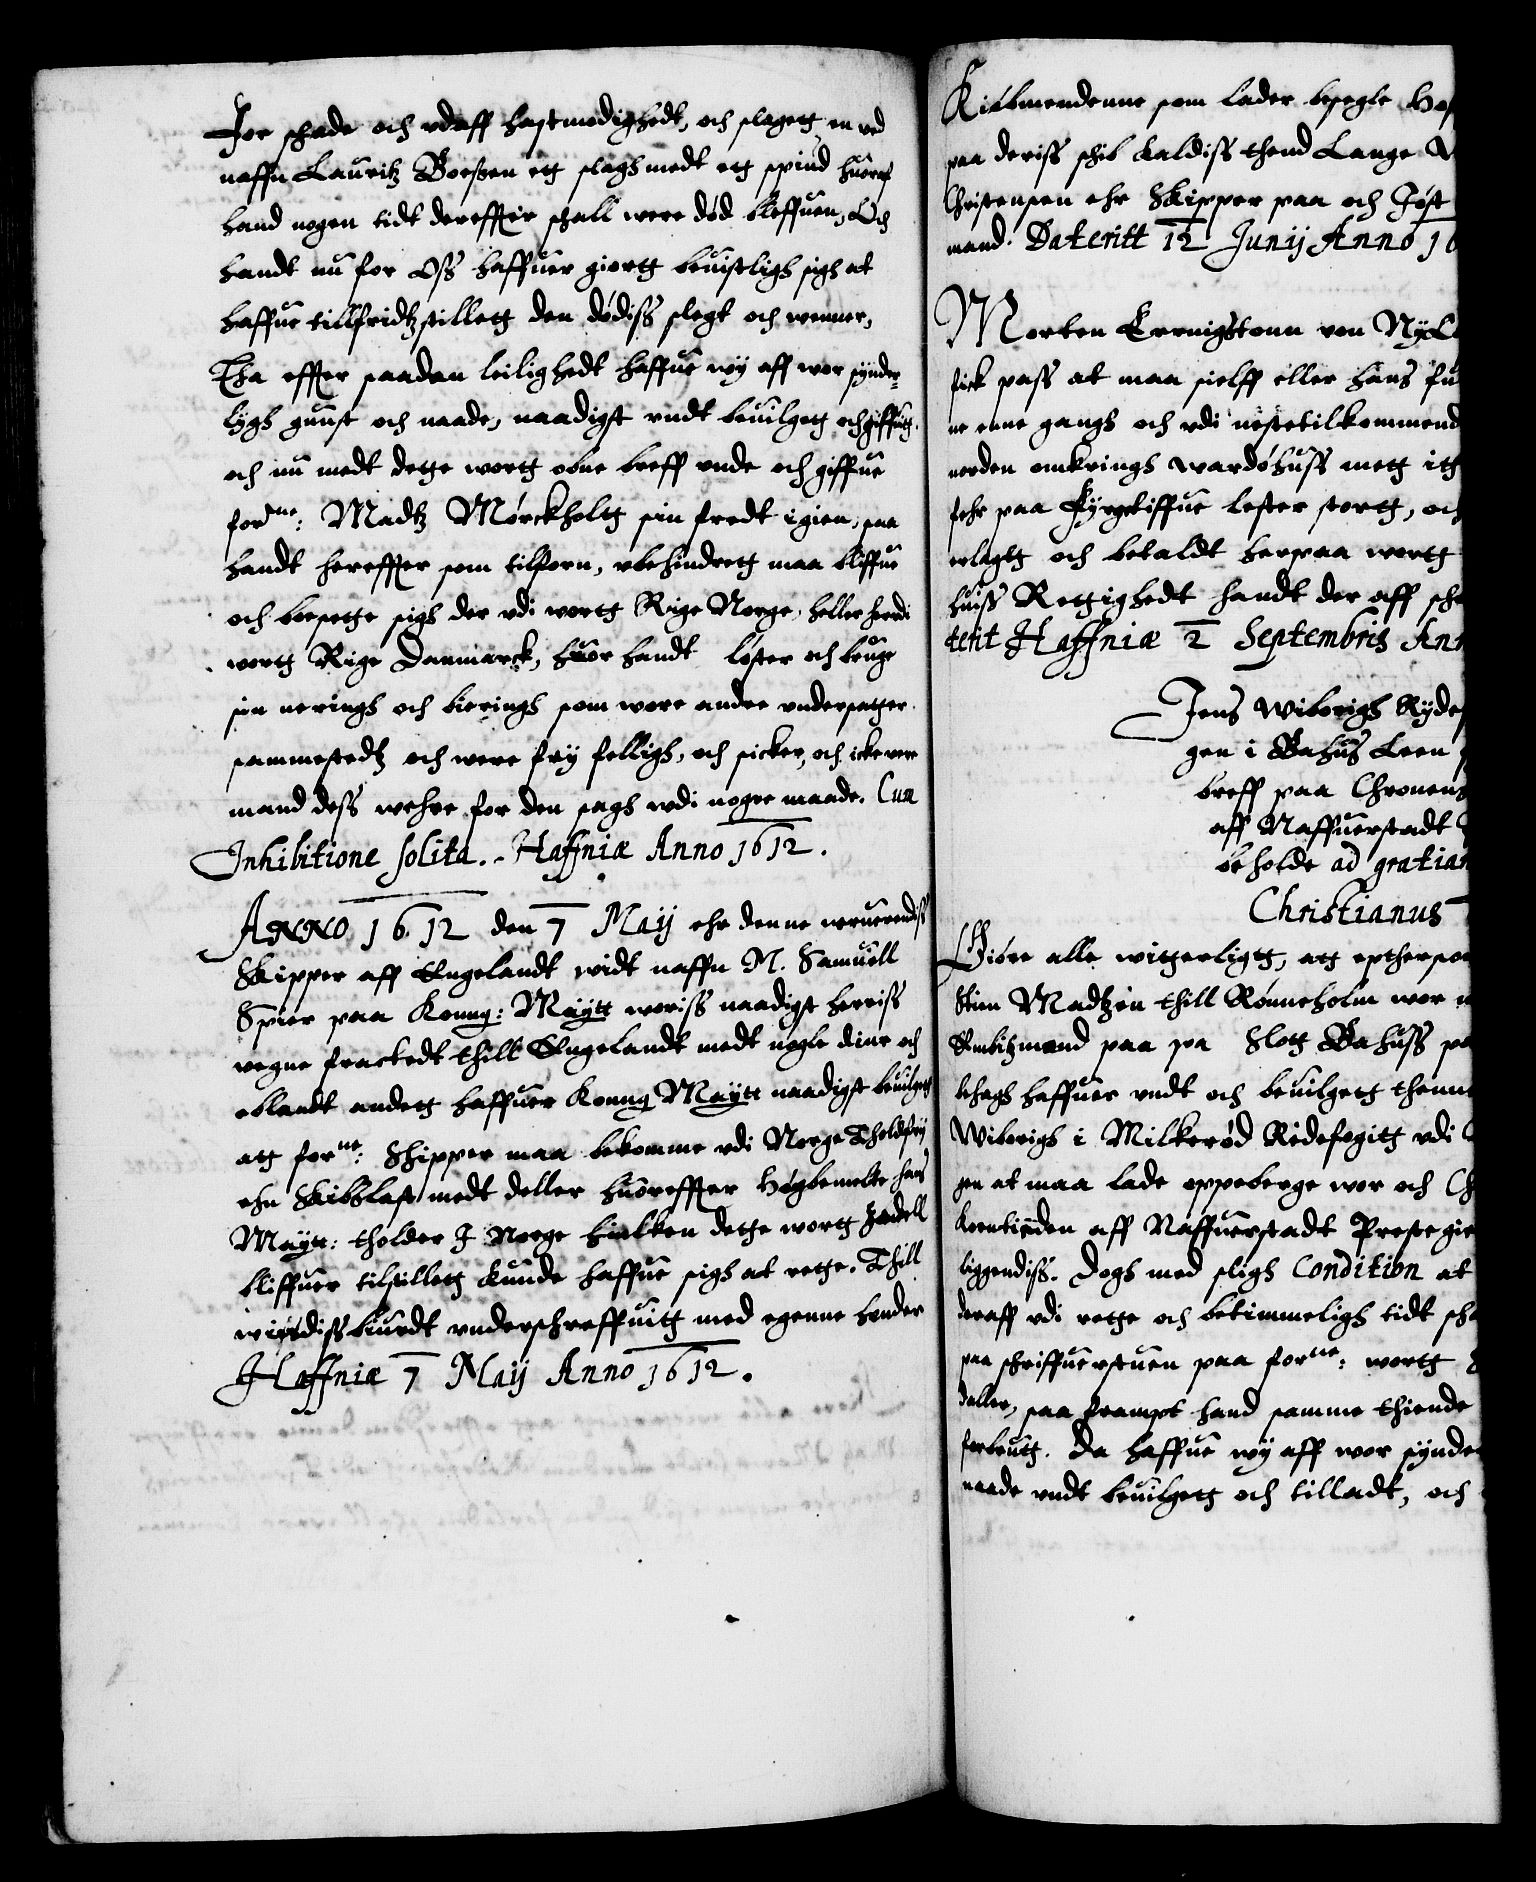 For schade och vdaff hastmodighedt, och slagetg en ved
naffn Lauritz Boeßen etg slagh medt etg spiud huoraf
hand nogen tidt dereffter schall were død bleffuen, Och
handt nu for Oss haffuer giortg beuistligh sigh at
haffue tillfridtzstilletg den dødiss slegt och wenner,
Tha effter saadan leilighedt haffue wy aff wor synder-
lygh gunst och naade, naadigst vndt beuilgetg och giffuitg
och nu medt dette wortg obne breff vnde och giffue
forne: Madtz Mørckholtg sin fredt igien, saa
handt hereffter som tilforn, vbehindretg maa bliffue
och besette sigh der vdi wortg Rige Norge, heller her vdi
wortg Rige Danmarck, huor handt løster och bruge
sin nerings och bierings som wore andre vndersatter
sammestedtz och were fry felligh, och sicker, och icke vere
mand dess wehre for den sagh vdi nogre maade. Cum
Inhibitione solita. Haffniæ Anno 1612.
ANNO 1612 den 7 Maij ehr denne neruerendiss
Skipper aff Engelandt widt naffn M. Samuell
Spier paa Konng: Maytt woriss naadigst herriss
vegne fracktedt thill Engelandt medt nogle diur och
eblandt andetg haffuer Konng Maytt naadigst beuilgetg
atg forne: Schipper maa bekomme vdi Norge Tholdfry
ehn Skibslast medt deller huoreffter Høgbemelte hans
Maytt: tholder I Norge huilken dette wortg Zedell
bliffuer tilstilletg kunde haffue sigh at rette. Thill
widissbiurdt vnderschreffuitg med egenne hender
Haffniæ 7 Maij Anno 1612.
Kiøbmendenne som lader besegle
paa deriss schib kaldiss thend Lange
Christensen ehr Skipper paa och Jøst
mand. Dateritt 12 Junij Anno 16
Morten von Ny
fick pass at maa sielff eller hans
ne enne gangh och vdi nestetilkommend
norden omkrings Wardøhuss metg
fehr paa lester stortg, och
erlagtg och betaldt herpaa wortg
huiss Rettighedt handt der aff
terit Haffniæ 2 Septembris Ann
Jens Wiborigh
gen i Bahus Leen
breff paa Chronens
aff Naffuerstadt
beholde ad gratiam
Christianus
Giøre alle witterligtg, atg
Stien Madtzen thill Rønneholm wor
Embitzmand paa Slotg Bahuss
behagh haffuer vndt och beuilgetg
Wiborigh i Milkerød Ridefogitg vdi
gen at maa lade oppeberge wor och
korntienden aff Naffuerstadt Prestegie
liggendiss. Dogh med sligh Condition at
deraff vdi rette och betimmeligh tidt
paa schriffuerstuen paa forne: wortg
daller, saa frampt hand samme thiende
forbrutg. Da haffue wy aff wor synder
naade vndt beuilgetg och tilladt, och